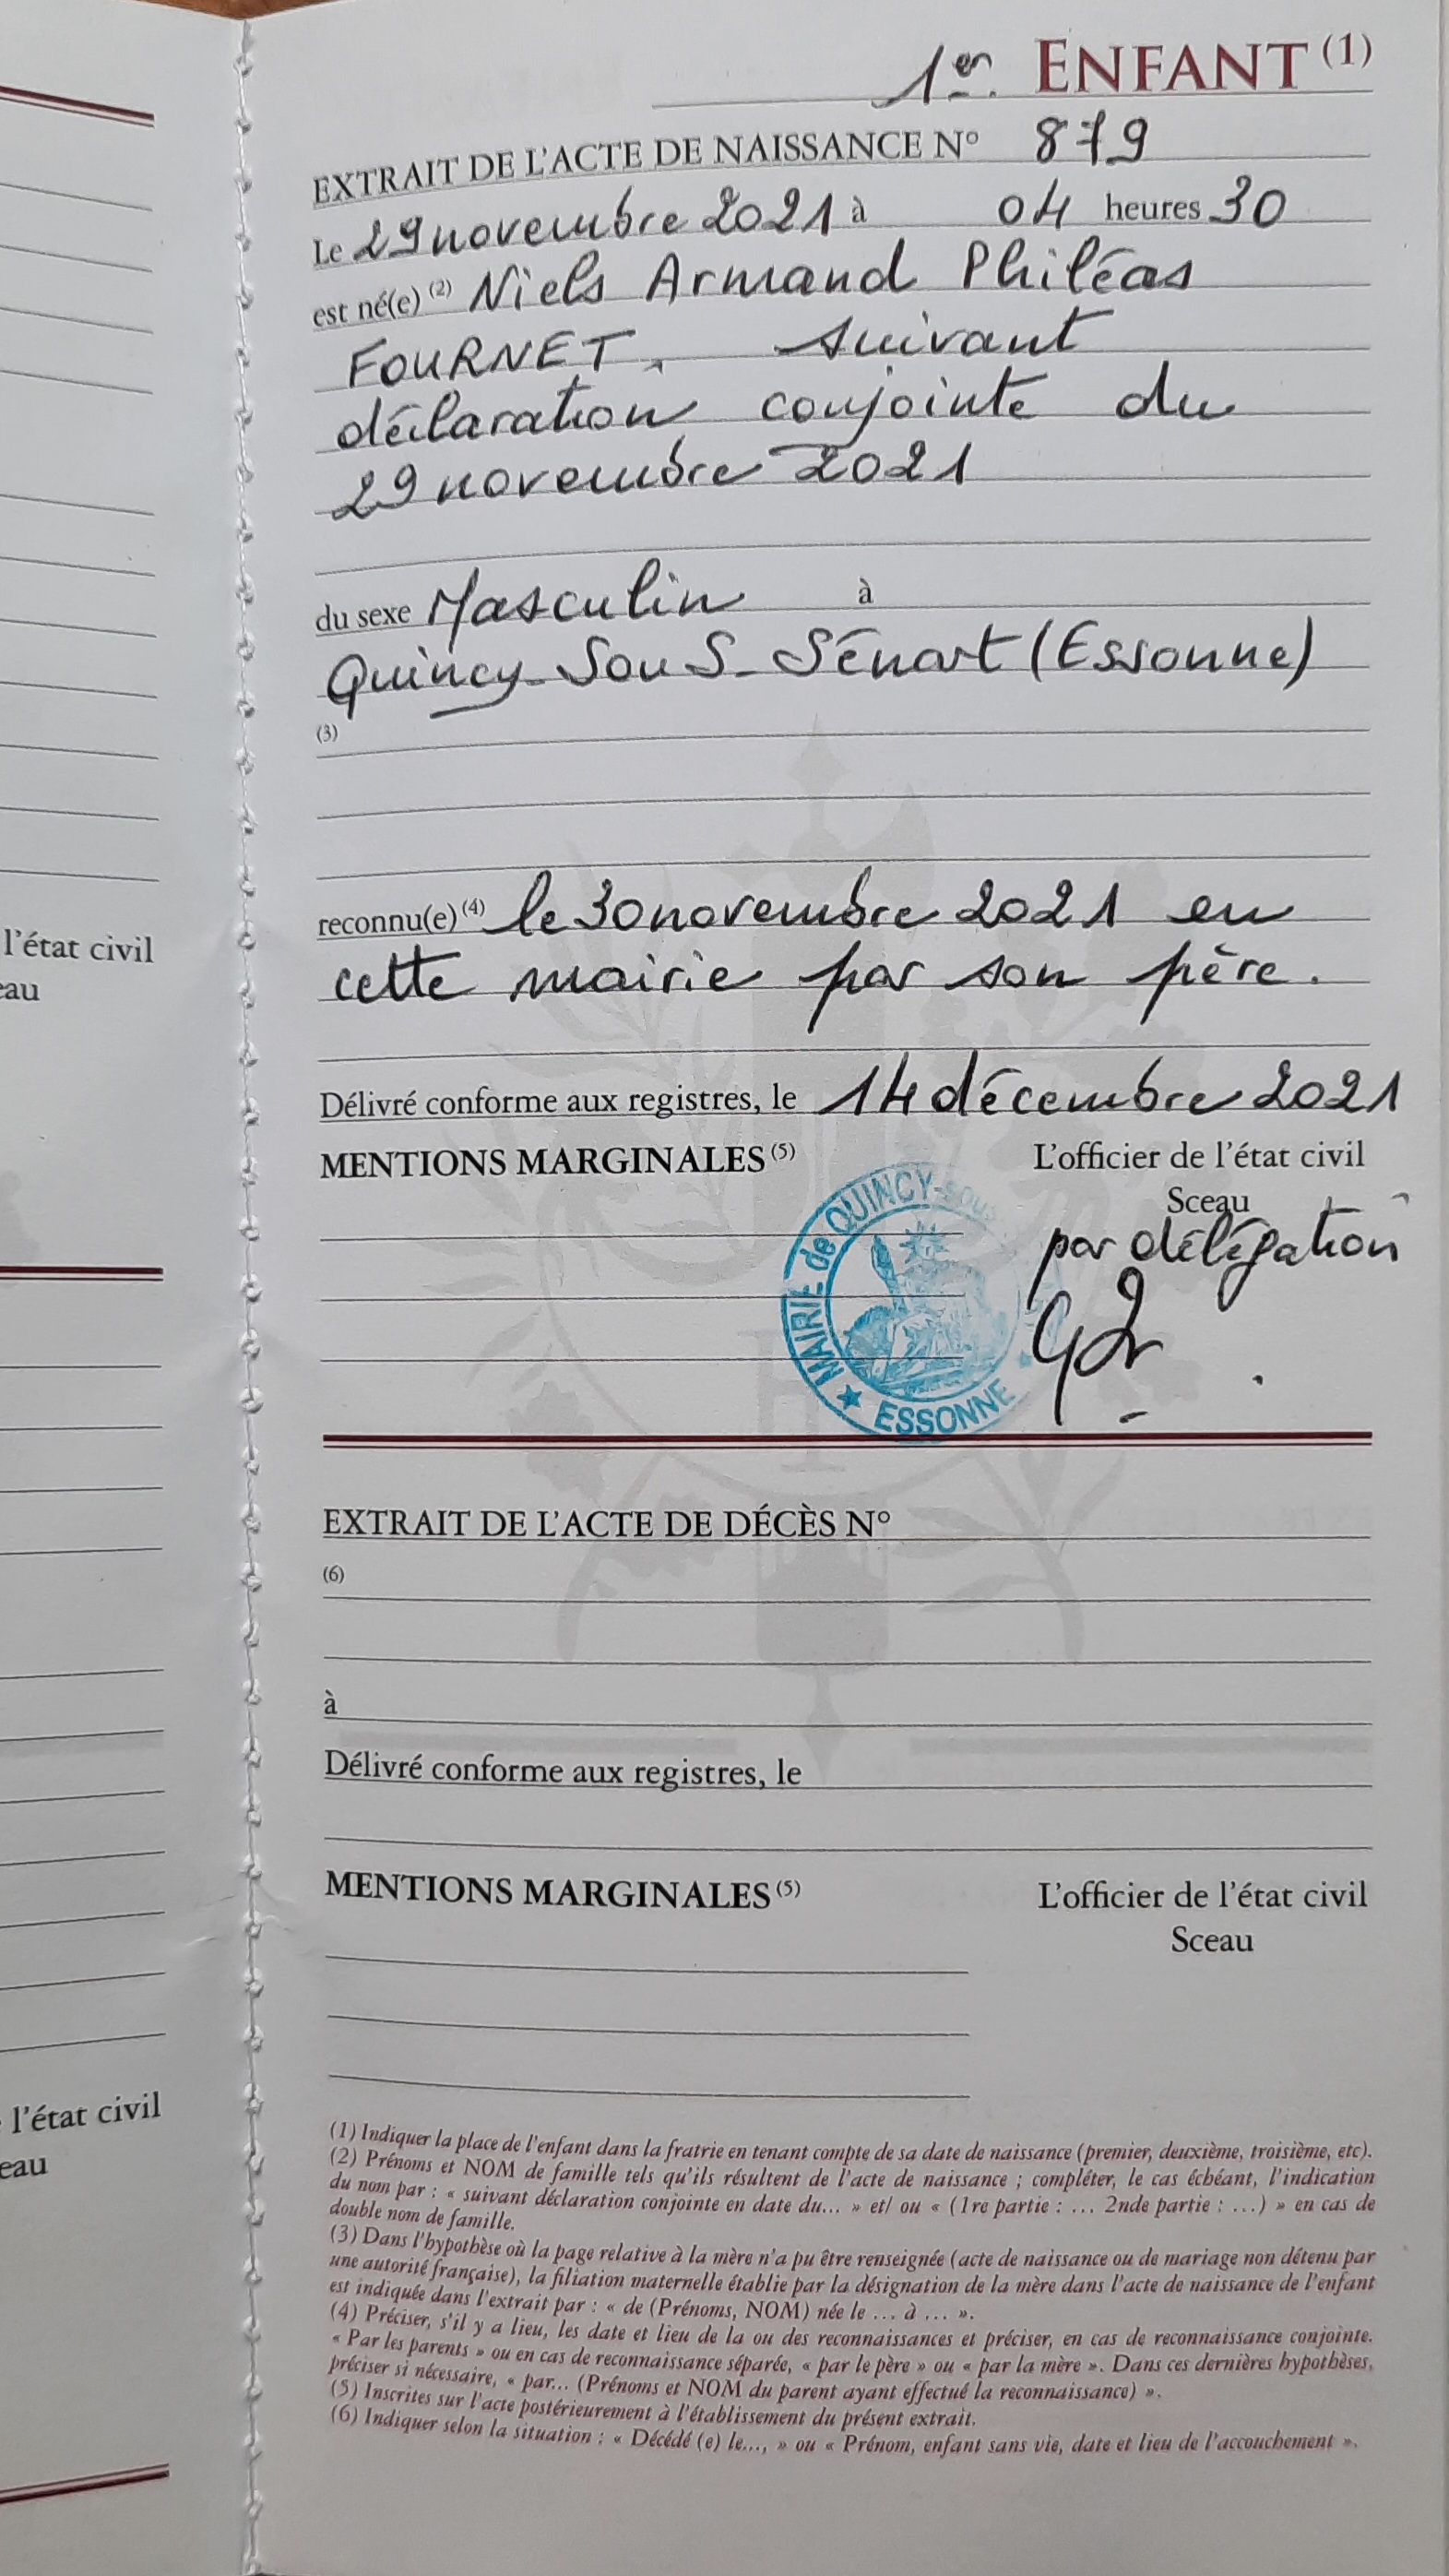 1er. ENFANT (1)
EXTRAIT DE L'ACTE DE NAISSANCE N° 879
Le 29 novembre 2021 à 04 heures 30
est né(e) (2) Niels Armand Philéas
FOURNET, suivant
déclaration conjointe du
29 novembre 2021
du sexe Masculin à
Quincy-Sous-Sénart (Essonne)
(3)
reconnu(e) (4) le 30 novembre 2021 en
cette mairie par son père.
Délivré conforme aux registres, le 14 décembre 2021
MENTIONS MARGINALES (5)
L'officier de l'état civil
Sceau
par délégation
MAIRIE de QUINCY-sous
ESSONNE
EXTRAIT DE L'ACTE DE DÉCÈS N°
(6)
à
Délivré conforme aux registres, le
MENTIONS MARGINALES (5)
L'officier de l'état civil
Sceau
(1) Indiquer la place de l'enfant dans la fratrie en tenant compte de sa date de naissance (premier, deuxième, troisième, etc).
(2) Prénoms et NOM de famille tels qu'ils résultent de l'acte de naissance ; compléter, le cas échéant, l'indication
du nom par : « suivant déclaration conjointe en date du... » et/ ou « (1re partie : ... 2nde partie : ...) » en cas de
double nom de famille.
(3) Dans l'hypothèse où la page relative à la mère n'a pu être renseignée (acte de naissance ou de mariage non détenu par
une autorité française), la filiation maternelle établie par la désignation de la mère dans l'acte de naissance de l'enfant
est indiquée dans l'extrait par : « de (Prénoms, NOM) née le ... à ... ».
(4) Préciser, s'il y a lieu, les date et lieu de la ou des reconnaissances et préciser, en cas de reconnaissance conjointe.
« Par les parents » ou en cas de reconnaissance séparée, « par le père » ou « par la mère ». Dans ces dernières hypothèses,
préciser si nécessaire, « par... (Prénoms et NOM du parent ayant effectué la reconnaissance) ».
(5) Inscrites sur l'acte postérieurement à l'établissement du présent extrait.
(6) Indiquer selon la situation : « Décédé (e) le..., » ou « Prénom, enfant sans vie, date et lieu de l'accouchement ».
l'état civil
eau
l'état civil
eau